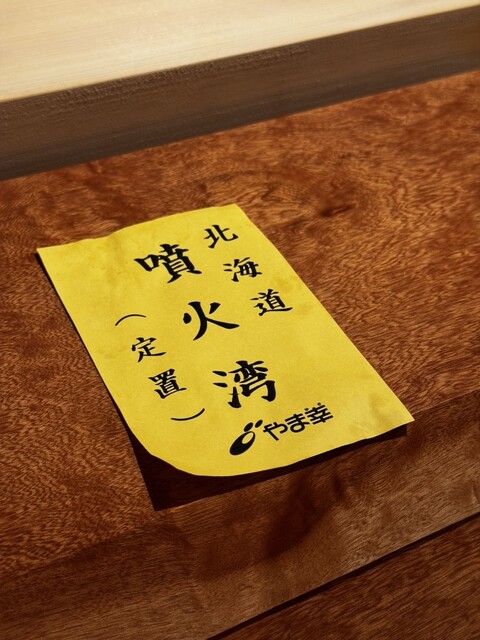 北海道
噴火湾
(定置)
やま幸